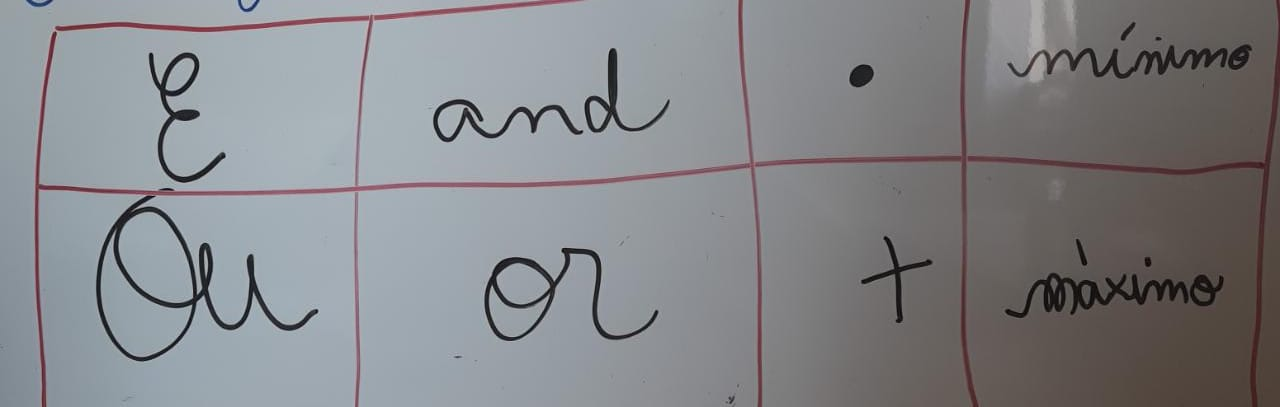 E and • mínimo
Ou or + máximo